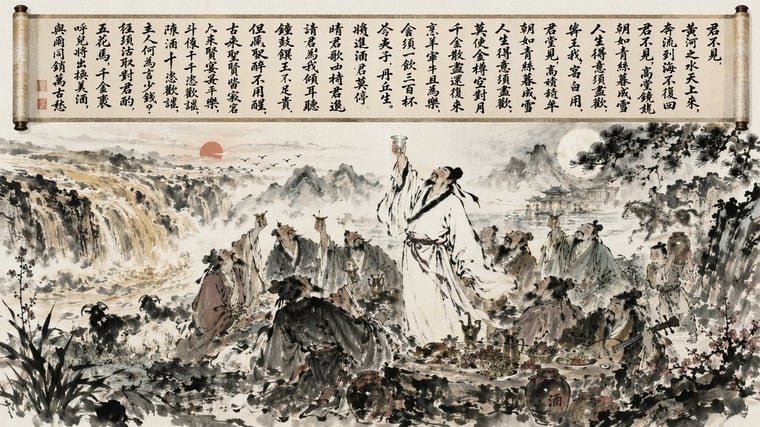 君不見,
黃河之水天上來,
奔流到海不復回
君不見,高堂鏡
朝如青絲暮成雪
人生得意須盡歡,
王我宮自用,
君堂見,高年
朝如青絲暮成雪
人生得意須盡歡,
莫使金樽空對月
千金散盡還復來
烹羊宰牛且為樂,
會須一飲三百杯
岑夫子,丹丘生,
將進酒君莫停
晴君歌山椅君逸
請君為我傾耳聽
鍾鼓饌玉不足貴,
但願醉不用醒
古來聖賢皆寂名
大來賢平樂,
斗像千千恣歡謔,
陳酒十十恣歡謔,
主人何為言少錢?
径須沽取對君酌,
五花馬,千金裘
呼兒將出換美酒,
與爾同銷萬古愁
酒